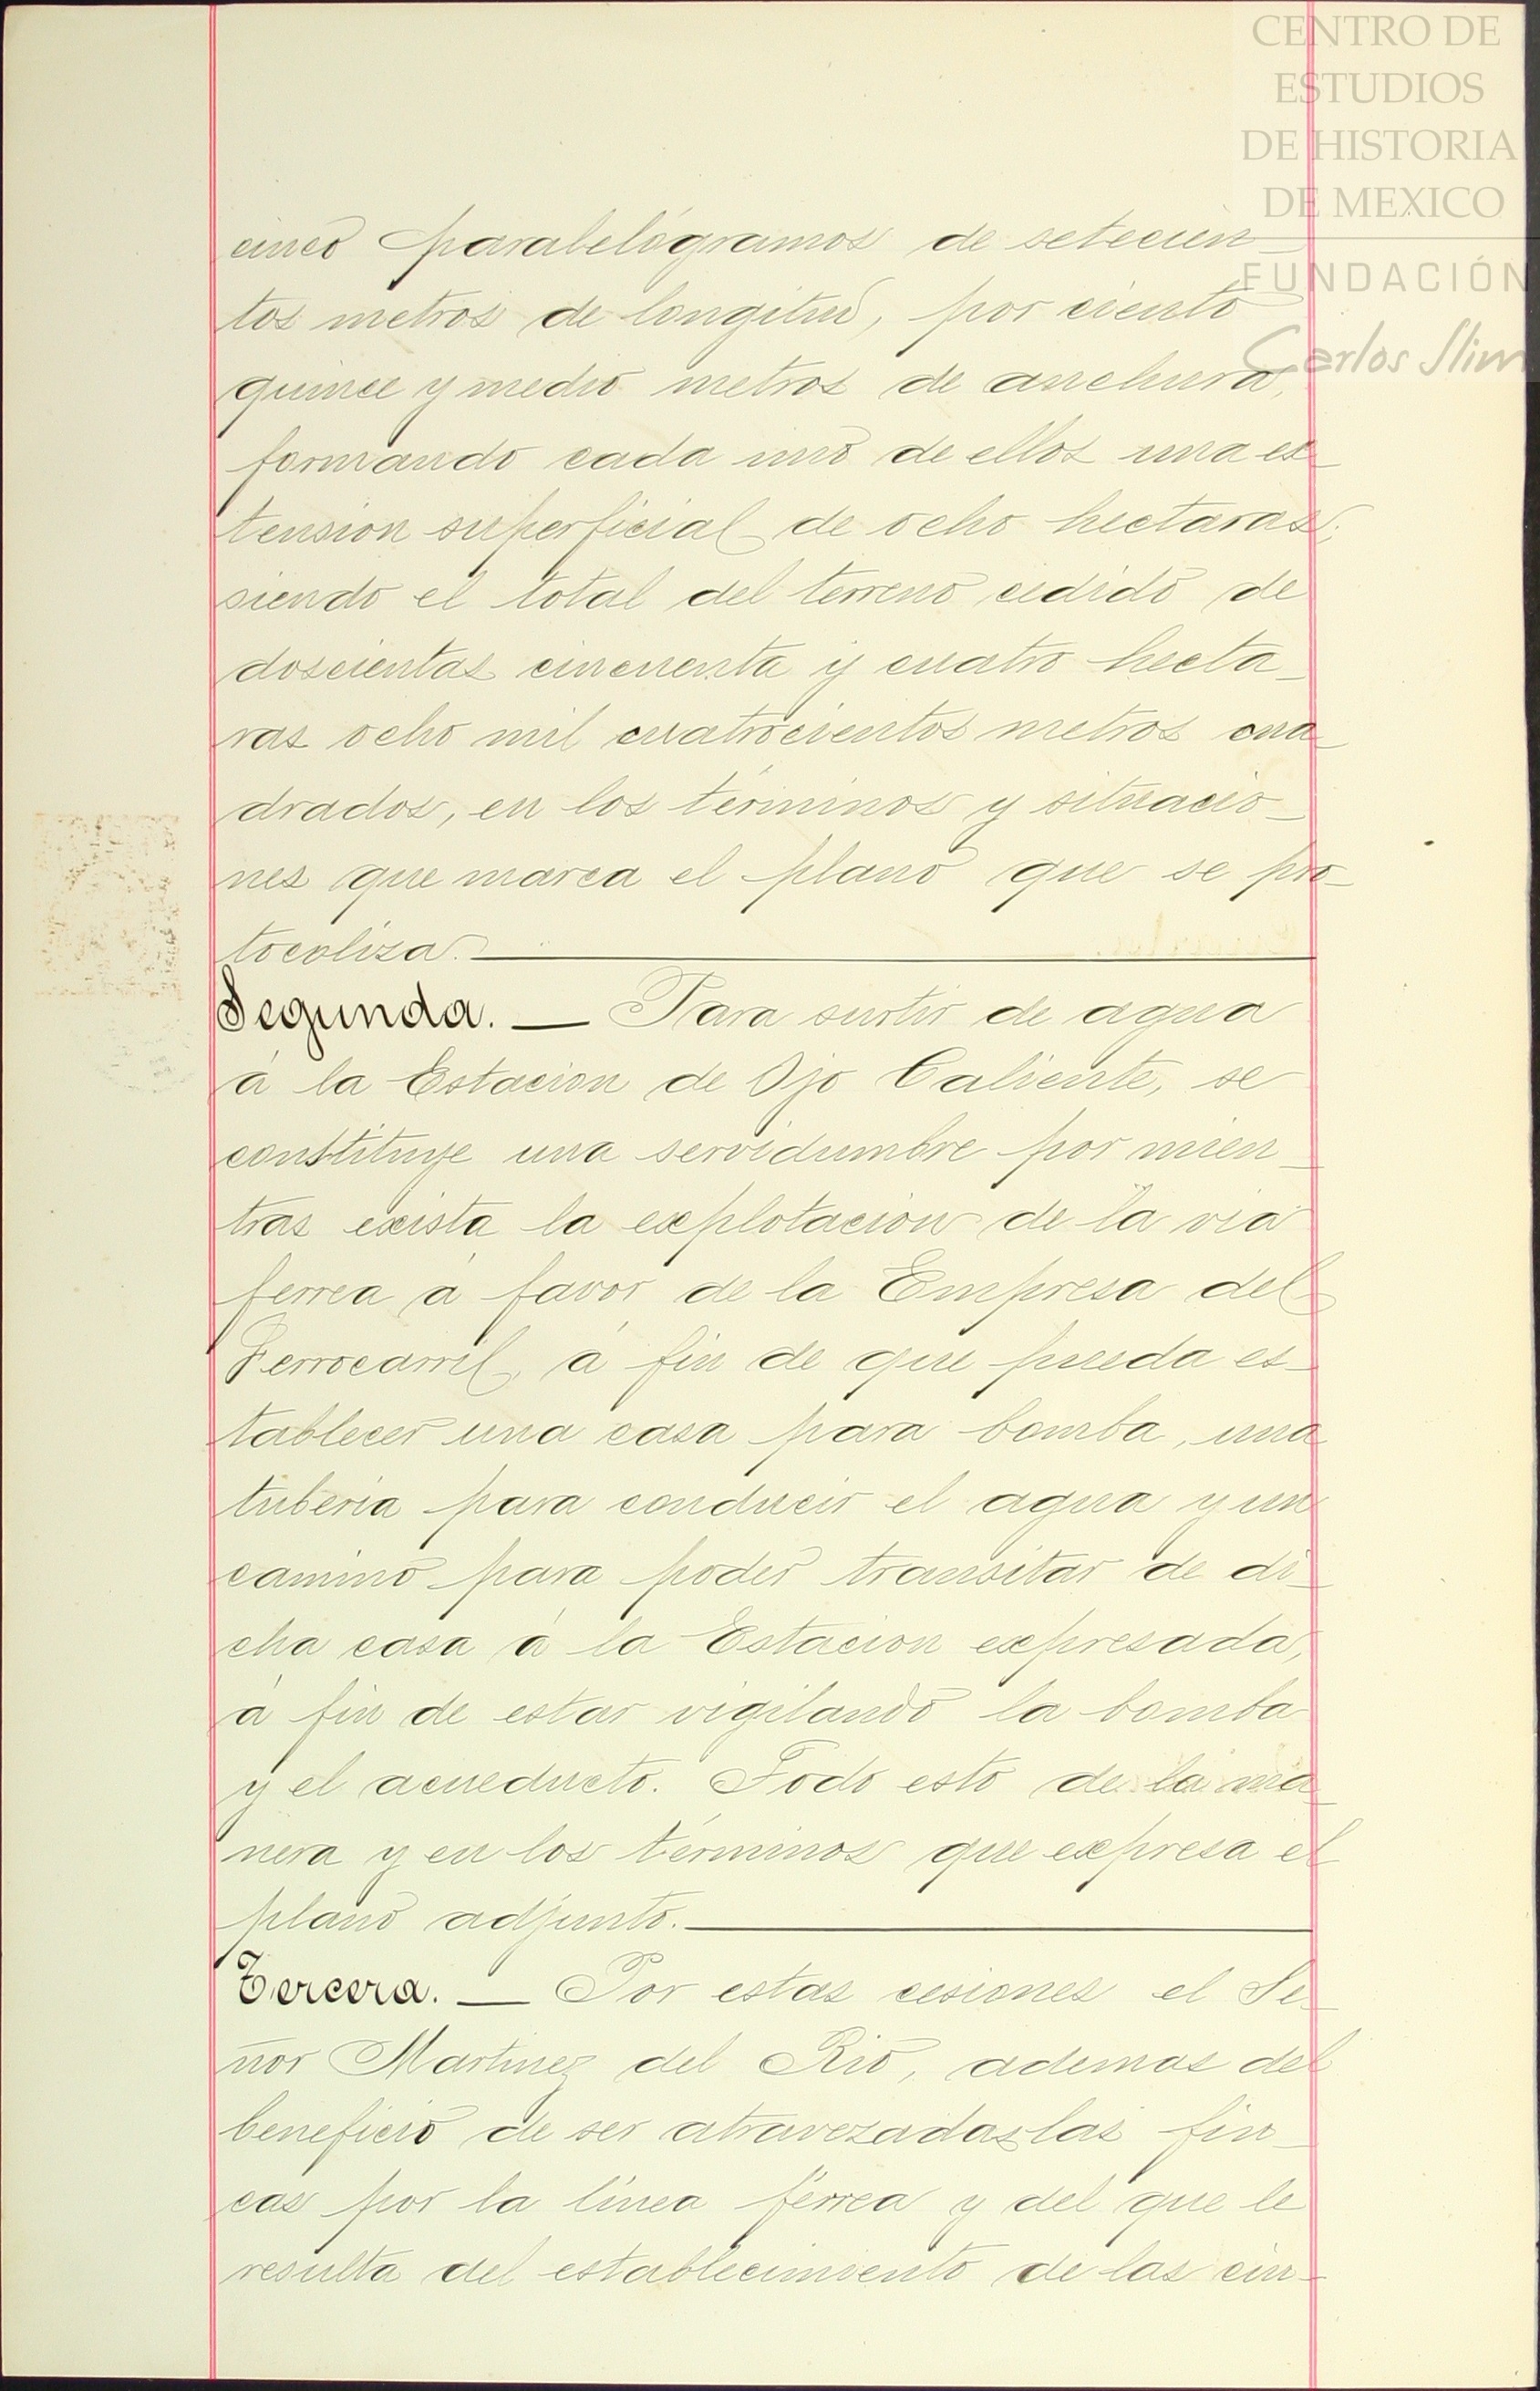 CENTRO DE
ESTUDIOS
DE HISTORIA
DE MEXICO
FUNDACIÓN
Carlos Slim
cinco parabelógramos de setecien-
tos metros de longitud, por ciento
quince y medio metros de anchura,
formando cada uno de ellos una es-
tension superficial de ocho hectaras;
siendo el total del terreno cedido de
doscientas cincuenta y cuatro hecta-
ras ocho mil cuatrocientos metros cua-
drados, en los términos y situacio-
nes que marca el plano que se pro-
tocoliza.
Segunda. — Para surtir de agua
á la Estacion de Ojo Caliente, se
constituye una servidumbre por mien-
tras exista la explotacion de la via
ferrea á favor de la Empresa del
Ferrocarril, á fin de que pueda es-
tablecer una casa para bomba, una
tuberia para conducir el agua y un
camino para poder transitar de di-
cha casa á la Estacion expresada,
á fin de estar vigilando la bomba
y el acueducto. Todo esto de la ma-
nera y en los términos que expresa el
plano adjunto.
Tercera. — Por estas cesiones el Se-
ñor Martinez del Rio, ademas del
beneficio de ser atravezadas las fin-
cas por la línea férrea y del que le
resulta del establecimiento de las cin-